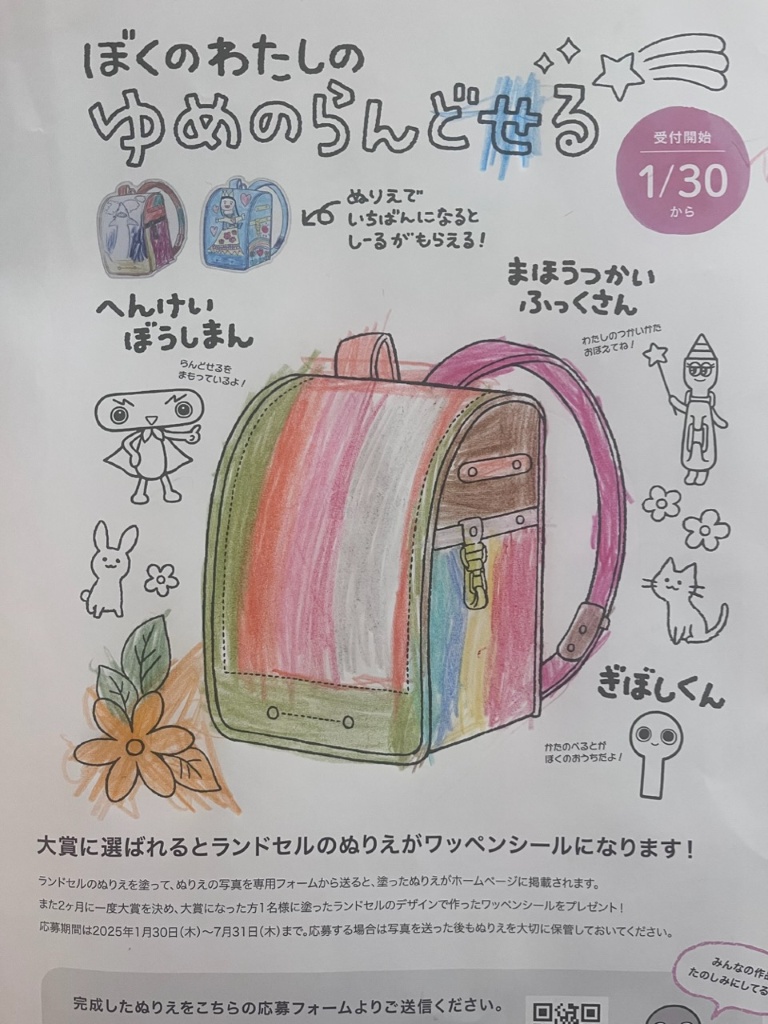 ぼくのわたしの
ゆめのらんどせる
受付開始
1/30
から
ぬりえで
いちばんになると
しーるがもらえる!
へんけい
ぼうしまん
らんどせるを
まもっているよ!
まほうつかい
ふっくさん
わたしのつかいかた
おぼえてね!
ぎぼしくん
かたのべるとが
ぼくのおうちだよ!
大賞に選ばれるとランドセルのぬりえがワッペンシールになります!
ランドセルのぬりえを塗って、ぬりえの写真を専用フォームから送ると、塗ったぬりえがホームページに掲載されます。
また2ヶ月に一度大賞を決め、大賞になった方1名様に塗ったランドセルのデザインで作ったワッペンシールをプレゼント!
応募期間は2025年1月30日(木)〜7月31日(木)まで。応募する場合は写真を送った後もぬりえを大切に保管しておいてください。
みんなの作
たのしみにしてる
完成したぬりえをこちらの応募フォームよりご送信ください。